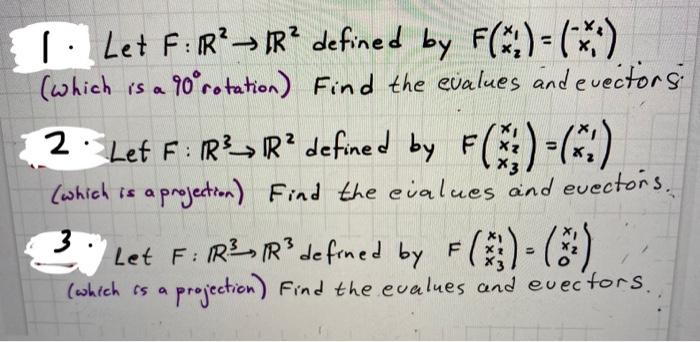 1. Let F: ℝ² → ℝ² defined by F(x₁ x₂) = (-x₂ x₁)
(which is a 90° rotation) Find the evalues and evectors.
2. Let F: ℝ³ → ℝ² defined by F(x₁ x₂ x₃) = (x₁ x₂)
(which is a projection) Find the evalues and evectors.
3. Let F: ℝ³ → ℝ³ defined by F(x₁ x₂ x₃) = (x₁ x₂ 0)
(which is a projection) Find the evalues and evectors.